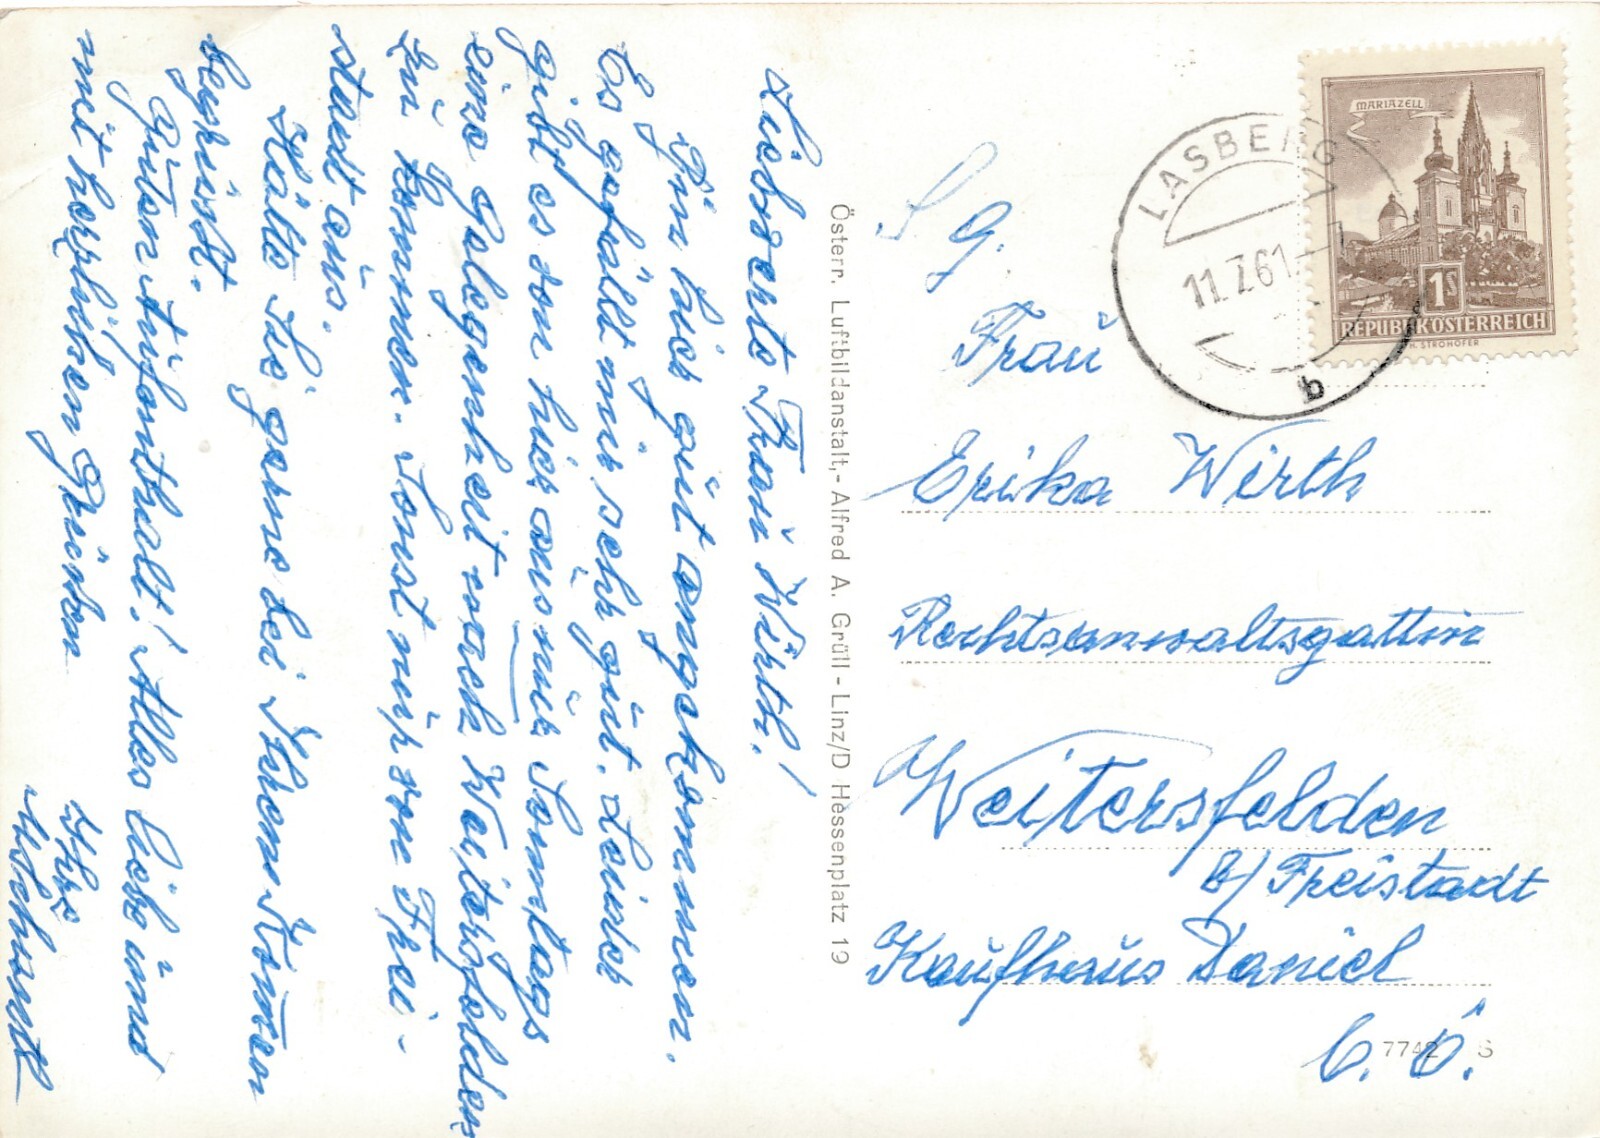 Liebwerte Frau Wirth!
Bin hier gut angekommen.
Es gefällt mir sehr gut. Leider
gibt es von hier aus nur Sonntags
eine Gelegenheit nach Weitersfelden
zu kommen. Sonst nur von Frei-
stadt aus.
Hätte Sie gerne bei Ihrem Kommen
begrüßt.
Guten Aufenthalt! Alles Liebe und
mit herzlichen Grüßen
Ihre
Österr. Luftbildanstalt,- Alfred A. Grüll - Linz/D Hessenplatz 19
MARIAZELL
1S
REPUBLIK ÖSTERREICH
H. STROHOFER
LASBERG
11.7.61
b
S. g.
Frau
Erika Wirth
Rechtsanwaltsgattin
Weitersfelden
b/ Freistadt
Kaufhaus Daniel
O. Ö.
7742 S